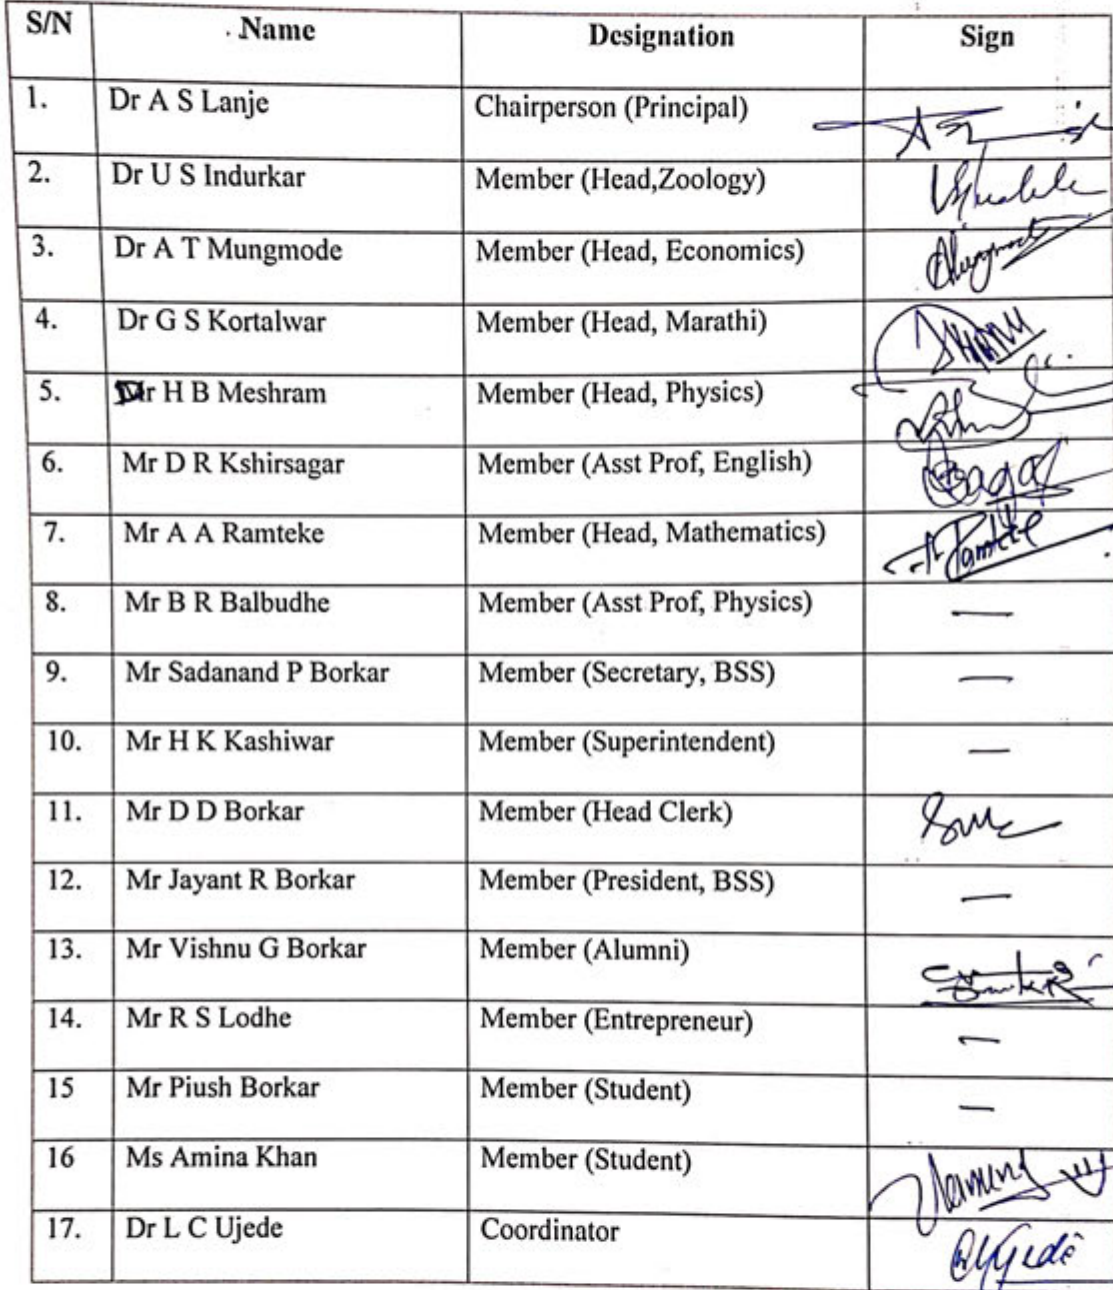 S/N Name Designation Sign
1. Dr A S Lanje Chairperson (Principal)
2. Dr U S Indurkar Member (Head,Zoology)
3. Dr A T Mungmode Member (Head, Economics)
4. Dr G S Kortalwar Member (Head, Marathi)
5. Dr H B Meshram Member (Head, Physics)
6. Mr D R Kshirsagar Member (Asst Prof, English)
7. Mr A A Ramteke Member (Head, Mathematics) Ramteke
8. Mr B R Balbudhe Member (Asst Prof, Physics) —
9. Mr Sadanand P Borkar Member (Secretary, BSS) —
10. Mr H K Kashiwar Member (Superintendent) —
11. Mr D D Borkar Member (Head Clerk)
12. Mr Jayant R Borkar Member (President, BSS) —
13. Mr Vishnu G Borkar Member (Alumni)
14. Mr R S Lodhe Member (Entrepreneur) —
15 Mr Piush Borkar Member (Student) —
16 Ms Amina Khan Member (Student)
17. Dr L C Ujede Coordinator